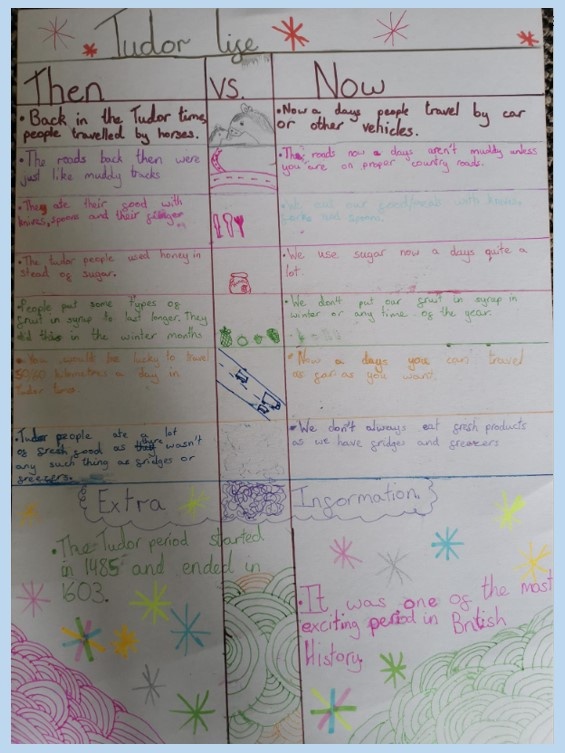 Tudor life
Then
vs.
Now
• Back in the Tudor time,
people travelled by horses.
• Now a days people travel by car
or other vehicles.
• The roads back then were
just like muddy tracks
• The roads now a days aren't muddy unless
you are on proper country roads.
• They ate their food with
knives, spoons and their fingers
• We eat our food/meals with knives,
forks and spoons.
• The tudor people used honey in
stead of sugar.
• We use sugar now a days quite a
lot.
• People put some types of
fruit in syrup to last longer. They
did this in the winter months
• We don't put our fruit in syrup in
winter or any time of the year.
• You would be lucky to travel
kilometres a day in
Tudor times.
• Now a days you can travel
as far as you want.
• Tudor people ate a lot
of fresh food as there wasn't
any such thing as fridges or
freezers.
• We don't always eat fresh products
as we have fridges and freezers
Extra
Information.
• The Tudor period started
in 1485 and ended in
1603.
• It was one of the most
exciting period in British
History.